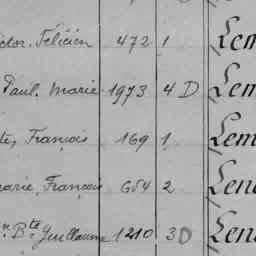 ctor. Félicien 472 1 Lem
Paul. Marie 1973 4 D Lem
te, François 169 1 Lem
marie, François 654 2 Len
n. Bte Guillaume 1210 3D Len